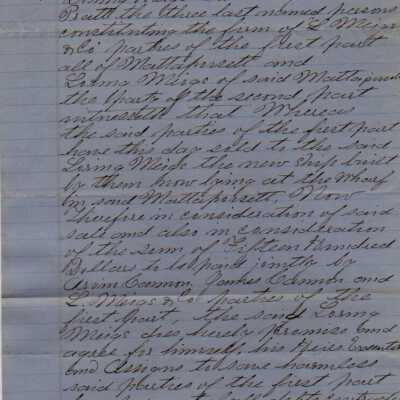 Batt the three last named persons
constituting the firm of L Meigs
& Co parties of the first part
all of Mattapoisett and
Loring Meigs of said Mattapoisett
the party of the second part
witnesseth that Whereas
the said parties of the first part
have this day sold to the said
Loring Meigs the new ship built
by them now lying at the Wharf
in said Mattapoisett, Now
therefore in consideration of said
sale and also in consideration
of the sum of Fifteen Hundred
Dollars to be paid jointly by
Cannon, James Cannon and
L. Meigs & Co parties of the
first part, the said Loring
Meigs does hereby promise and
agree for himself, his Heirs Executors
and Assigns to save harmless
said parties of the first part